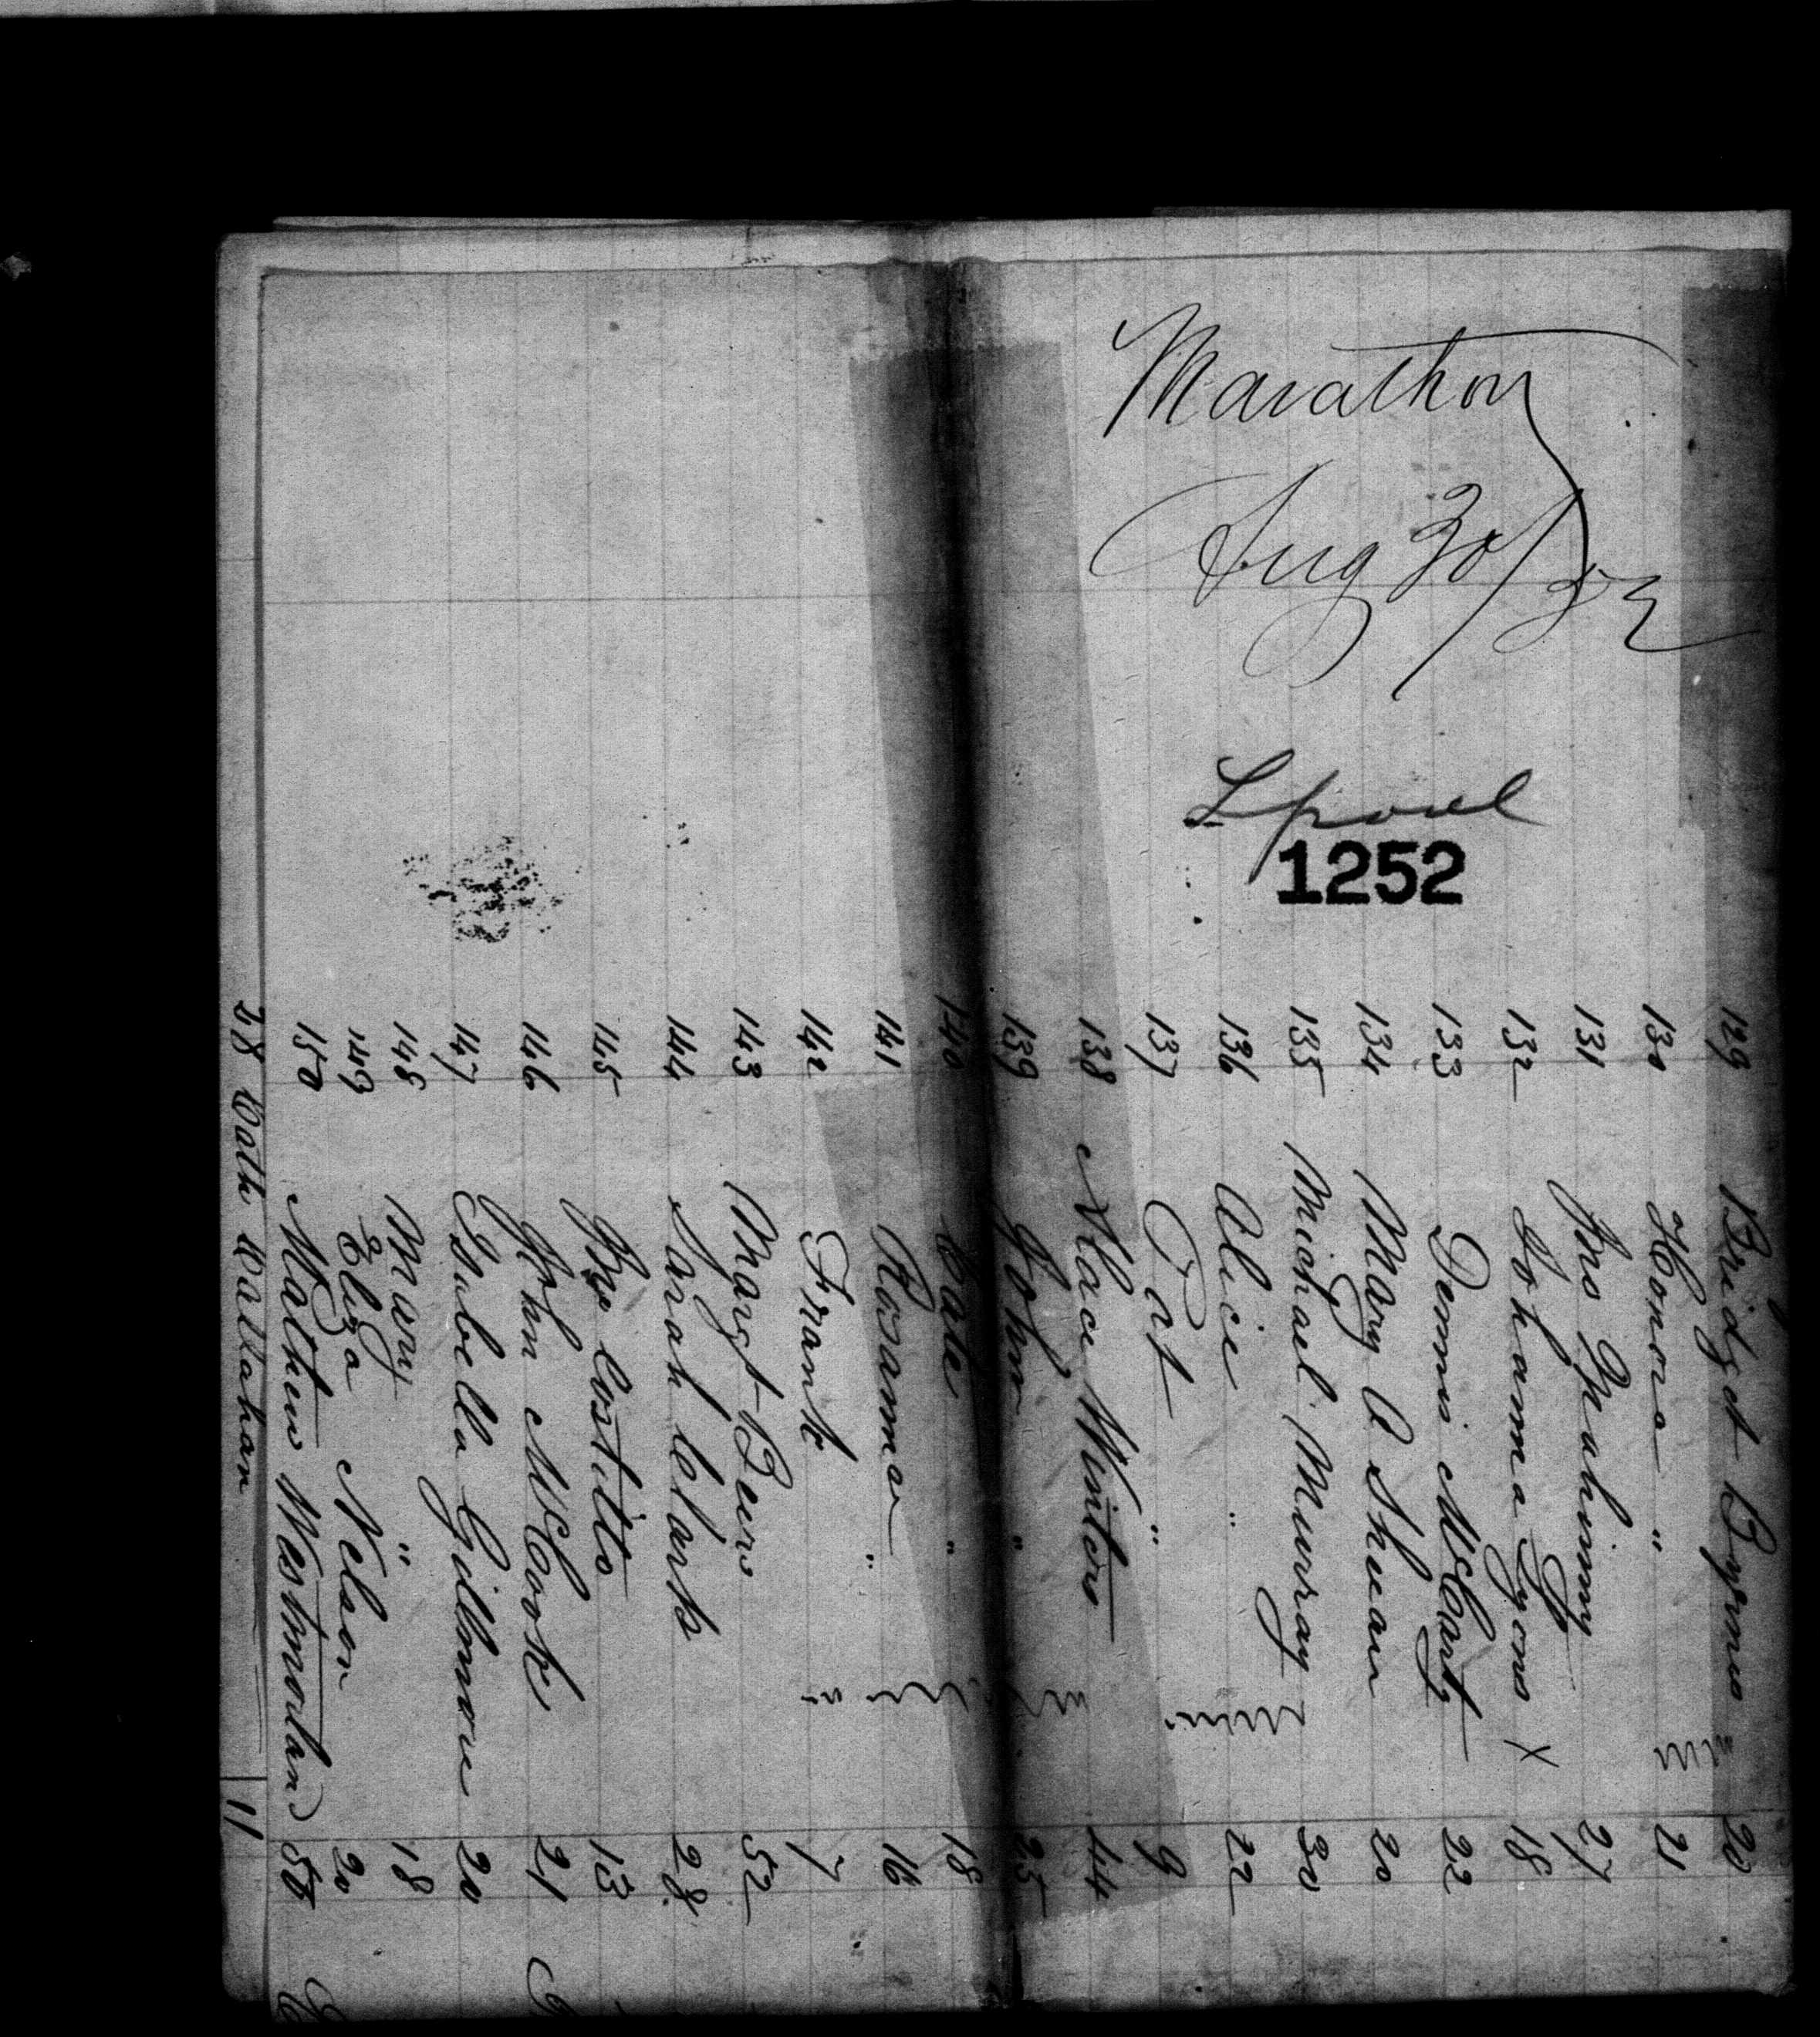 Marathon
Aug 30/52
Lpool
1252
129 Bridget Byrnes 20
130 Honora " 21
131 Jno Mahinny 27
132 Johanna Lyons X 18
133 Dennis McCarty 22
134 Mary A Shean 20
135 Michael Murray 30
136 Alice " 22
137 Pat " 9
138 Alace Winters 44
139 John " 25
140 Cate " 18
141 Rosanna " 16
142 Frank 7
143 Margt Beers 52
144 Sarah Clark 28
145 Costillo 13
146 John McCook 21
147 Isabella Gillmore 20
148 Mary " 18
149 Eliza Nelson 20
150 Mathew Westmorland 50
28 Cath Callahan 11